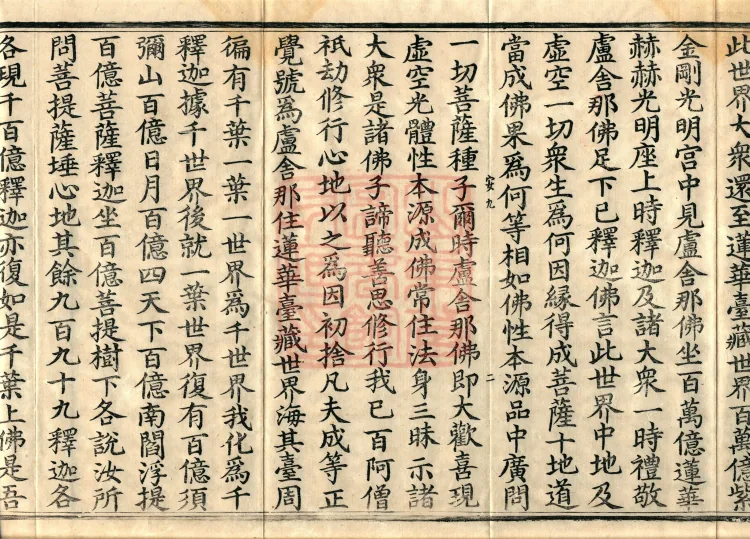 此世界大衆還至蓮華臺藏世界百萬億紫
金剛光明宮中見盧舍那佛坐百萬億蓮華
赫赫光明座上時釋迦及諸大衆一時禮敬
盧舍那佛足下已釋迦佛言此世界中地及
虛空一切衆生爲何因緣得成菩薩十地道
當成佛果爲何等相如佛性本源品中廣問
安九 二
一切菩薩種子爾時盧舍那佛即大歡喜現
虛空光體性本源成佛常住法身三昧示諸
大衆是諸佛子諦聽善思修行我已百阿僧
祇劫修行心地以之爲因初捨凡夫成等正
覺號爲盧舍那住蓮華臺藏世界海其臺周
徧有千葉一葉一世界爲千世界我化爲千
釋迦據千世界後就一葉世界復有百億須
彌山百億日月百億四天下百億南閻浮提
百億菩薩釋迦坐百億菩提樹下各說汝所
問菩提薩埵心地其餘九百九十九釋迦各
各現千百億釋迦亦復如是千葉上佛是吾